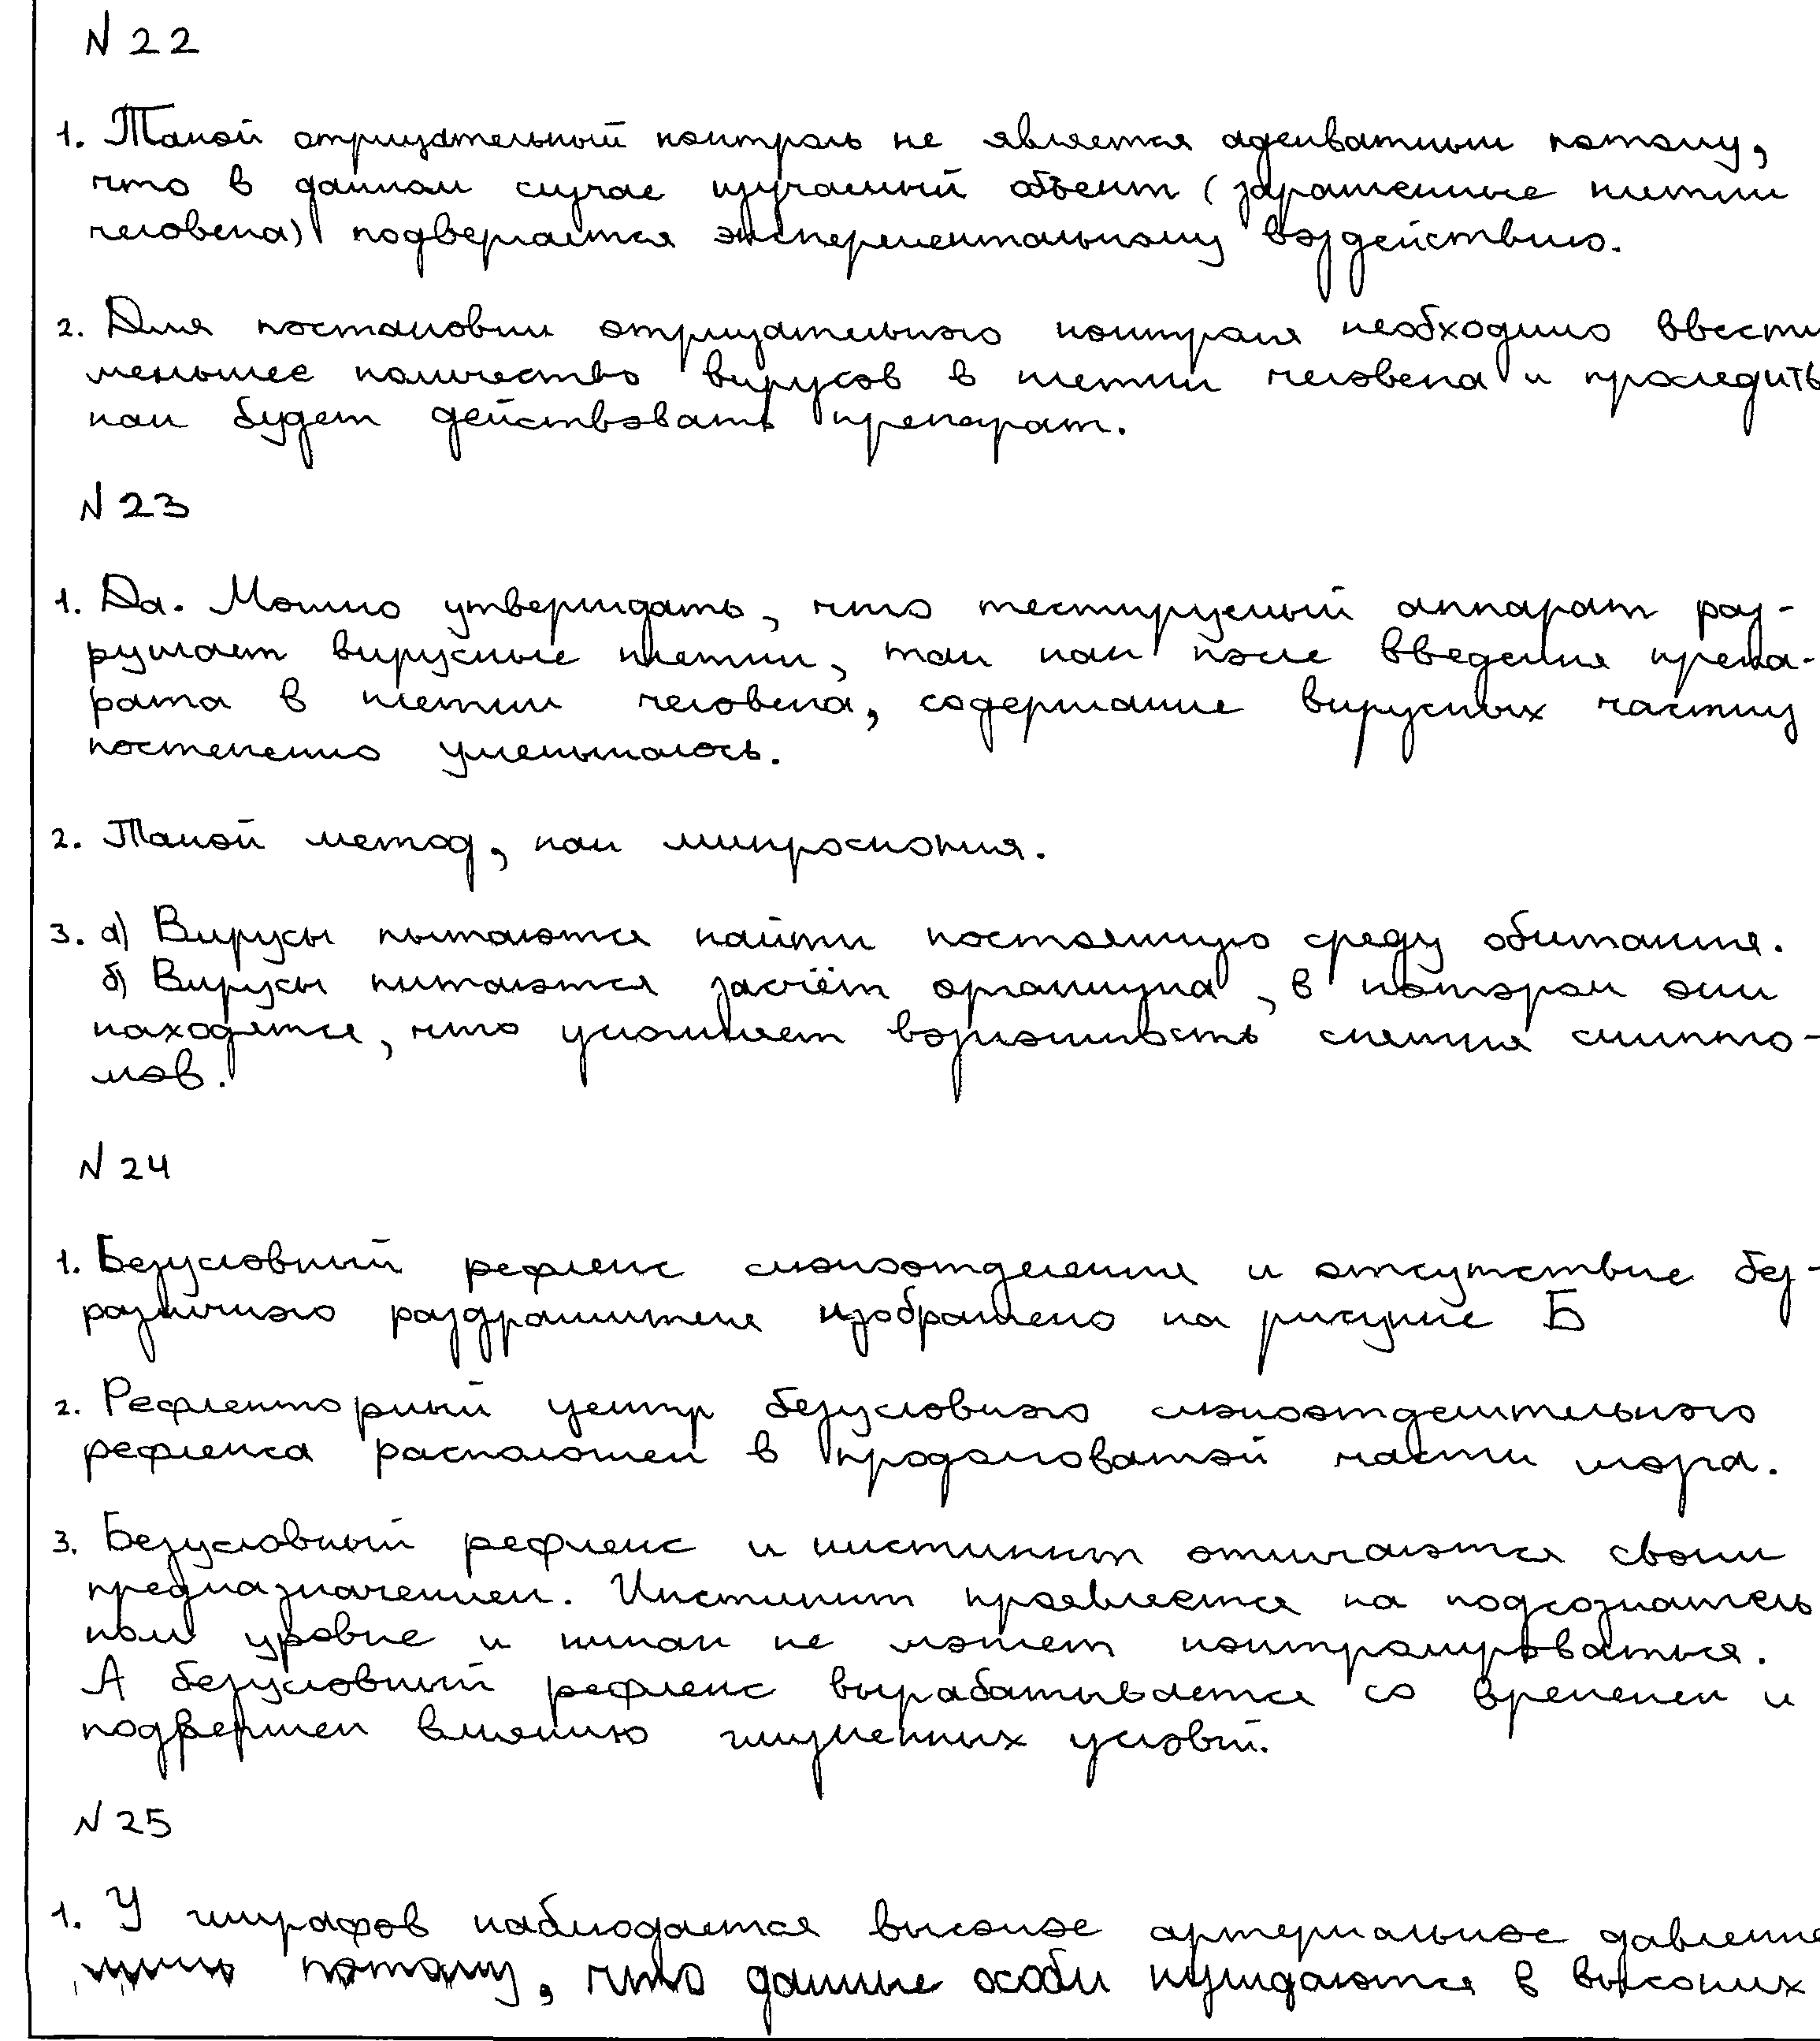 N 22
1. Такой отрицательный контроль не является адекватным потому,
что в данном случае изучаемый объект (зараженные клетки
человека) подвергается эксперементальному воздействию.
2. Для постановки отрицательного контроля необходимо ввести
меньшее количество вирусов в клетки человека и проследить
как будет действовать препарат.
N 23
1. Да. Можно утверждать, что тестируемый аппарат раз-
рушает вирусные клетки, так как после введения препа-
рата в клетки человека, содержание вирусных частиц
постепенно уменьшалось.
2. Такой метод, как микроскопия.
3. а) Вирусы пытаются найти постоянную среду обитания.
б) Вирусы питаются засчёт организма, в котором они
находятся, что усложняет возможность снятия симпто-
мов.
N 24
1. Безусловный рефлекс слюноотделения и отсутствие без-
различного раздражителя изображено на рисунке Б
2. Рефлекторный центр безусловного слюноотделительного
рефлекса расположен в продолговатой части мозга.
3. Безусловный рефлекс и инстинкт отличаются своим
предназначением. Инстинкт проявляется на подсознатель
ном уровне и никак не может контролироваться.
А безусловный рефлекс вырабатывается со временем и
подвержен влиянию жизненных условй.
N 25
1. У жирафов наблюдается высокое артериальное давление
потому, что данные особи нуждаются в высоких